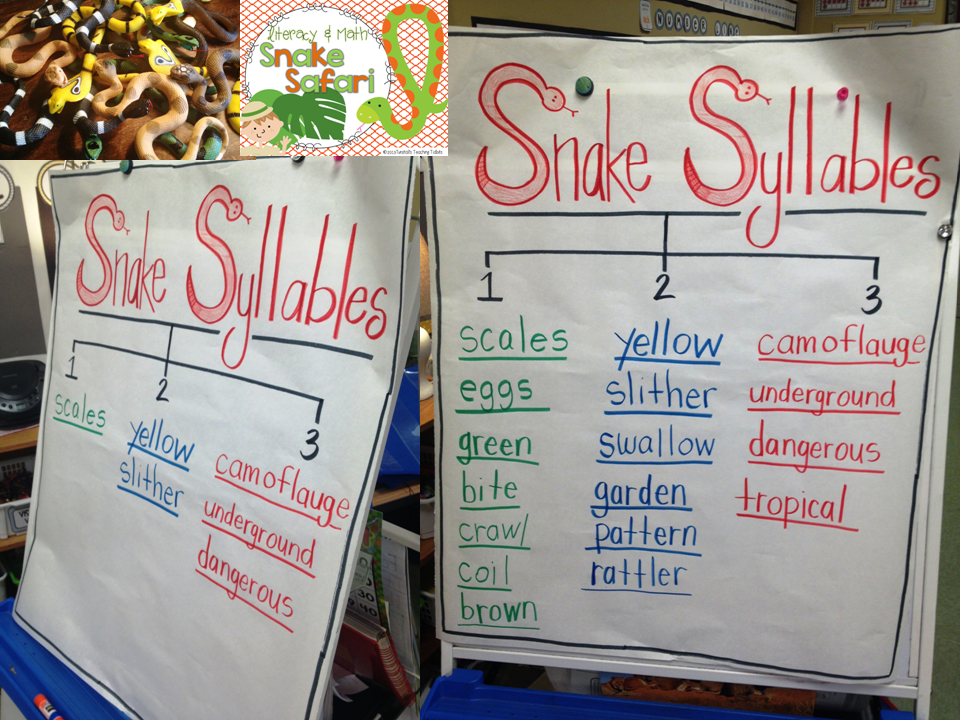 Literacy & Math
Snake
Safari
Snake Syllables
1 2 3
scales
yellow
slither
camoflauge
underground
dangerous
Snake Syllables
1 2 3
scales yellow camoflauge
eggs slither underground
green swallow dangerous
bite garden tropical
crawl pattern
coil rattler
brown